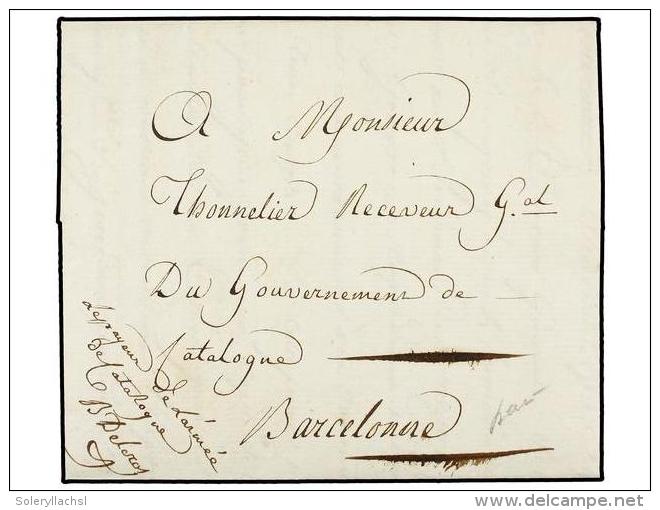 A Monsieur
Thonnelier Receveur G.al
Du Gouvernement de
Catalogne
Barcelonne
le payeur de L'armée
de Catalogne
Soleryllachsl
delcampe.net